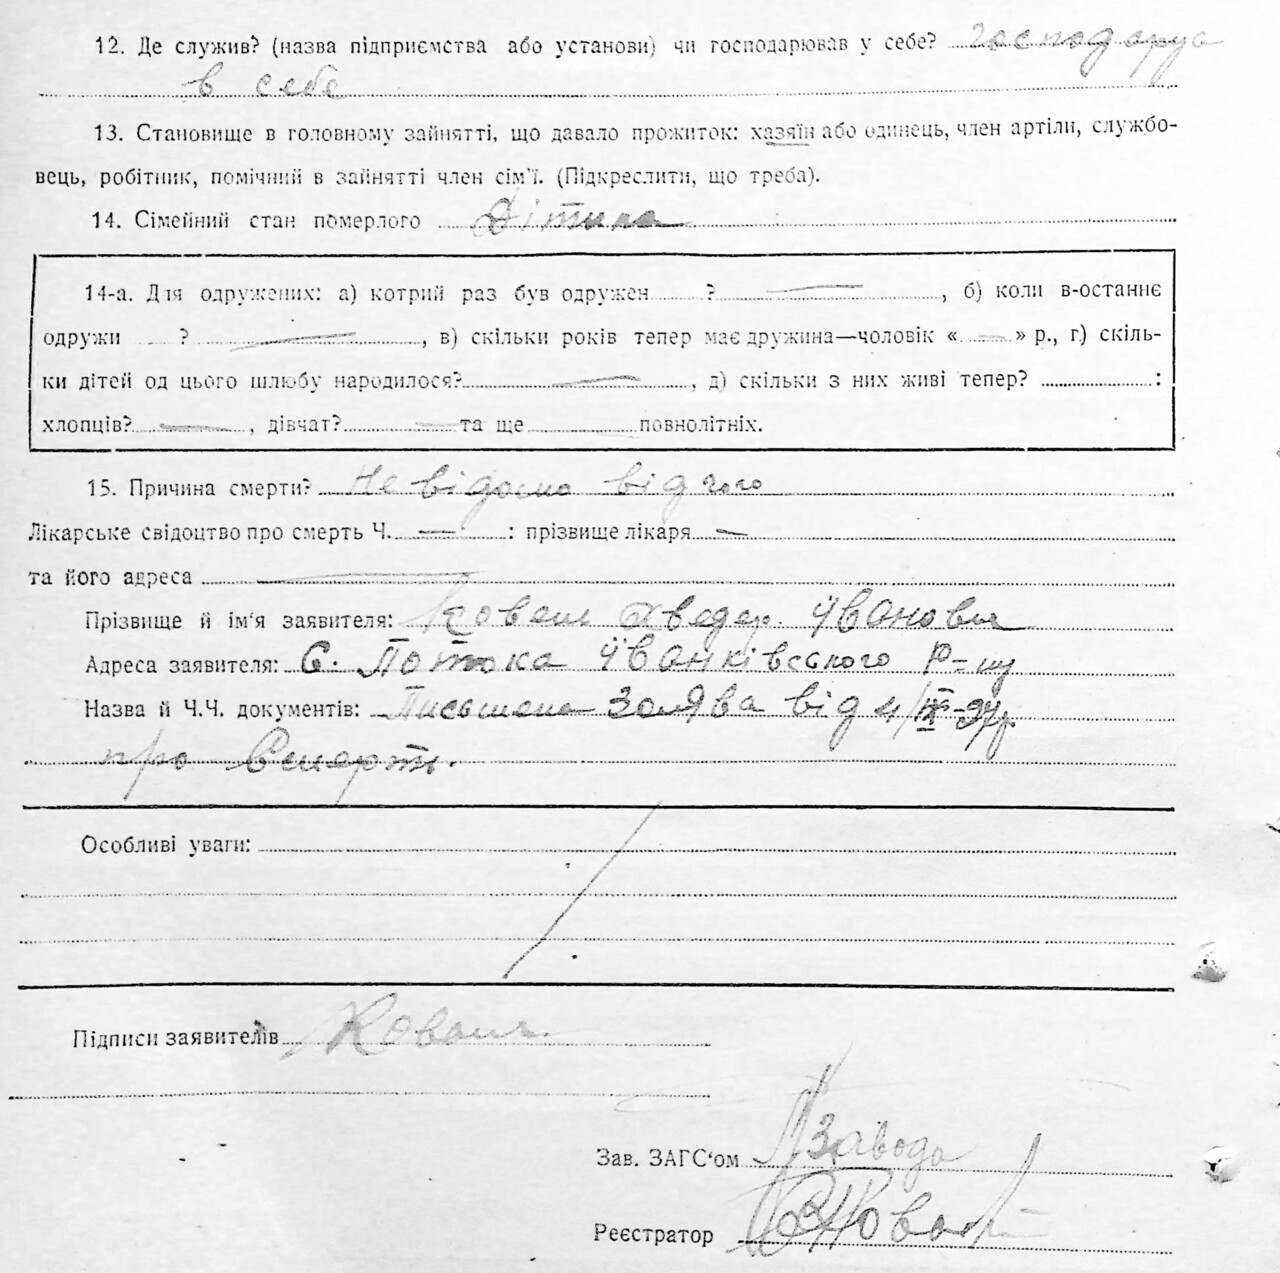 12. Де служив? (назва підприємства або установи) чи господарював у себе? господарує
в себе
13. Становище в головному зайнятті, що давало прожиток: хазяїн або одинець, член артіли, службо-
вець, робітник, помічний в зайнятті член сім'ї. (Підкреслити, що треба).
14. Сімейний стан померлого Дітина
14-а. Для одружених: а) котрий раз був одружен ? —, б) коли в-останнє
одружи ? —, в) скільки років тепер має дружина—чоловік « — » р., г) скіль-
ки дітей од цього шлюбу народилося? —, д) скільки з них живі тепер? :
хлопців? —, дівчат? — та ще повнолітніх.
15. Причина смерти? Не відомо від чого
Лікарське свідоцтво про смерть Ч. — : прізвище лікаря —
та його адреса —
Прізвище й ім'я заявителя: Хведер Іванович
Адреса заявителя: С. Потока Іванківського Р-ну
Назва й Ч.Ч. документів: Письмена Заява від 4/
про Смерть.
Особливі уваги:
Підписи заявителів
Зав. ЗАГС'ом Завода
Реєстратор